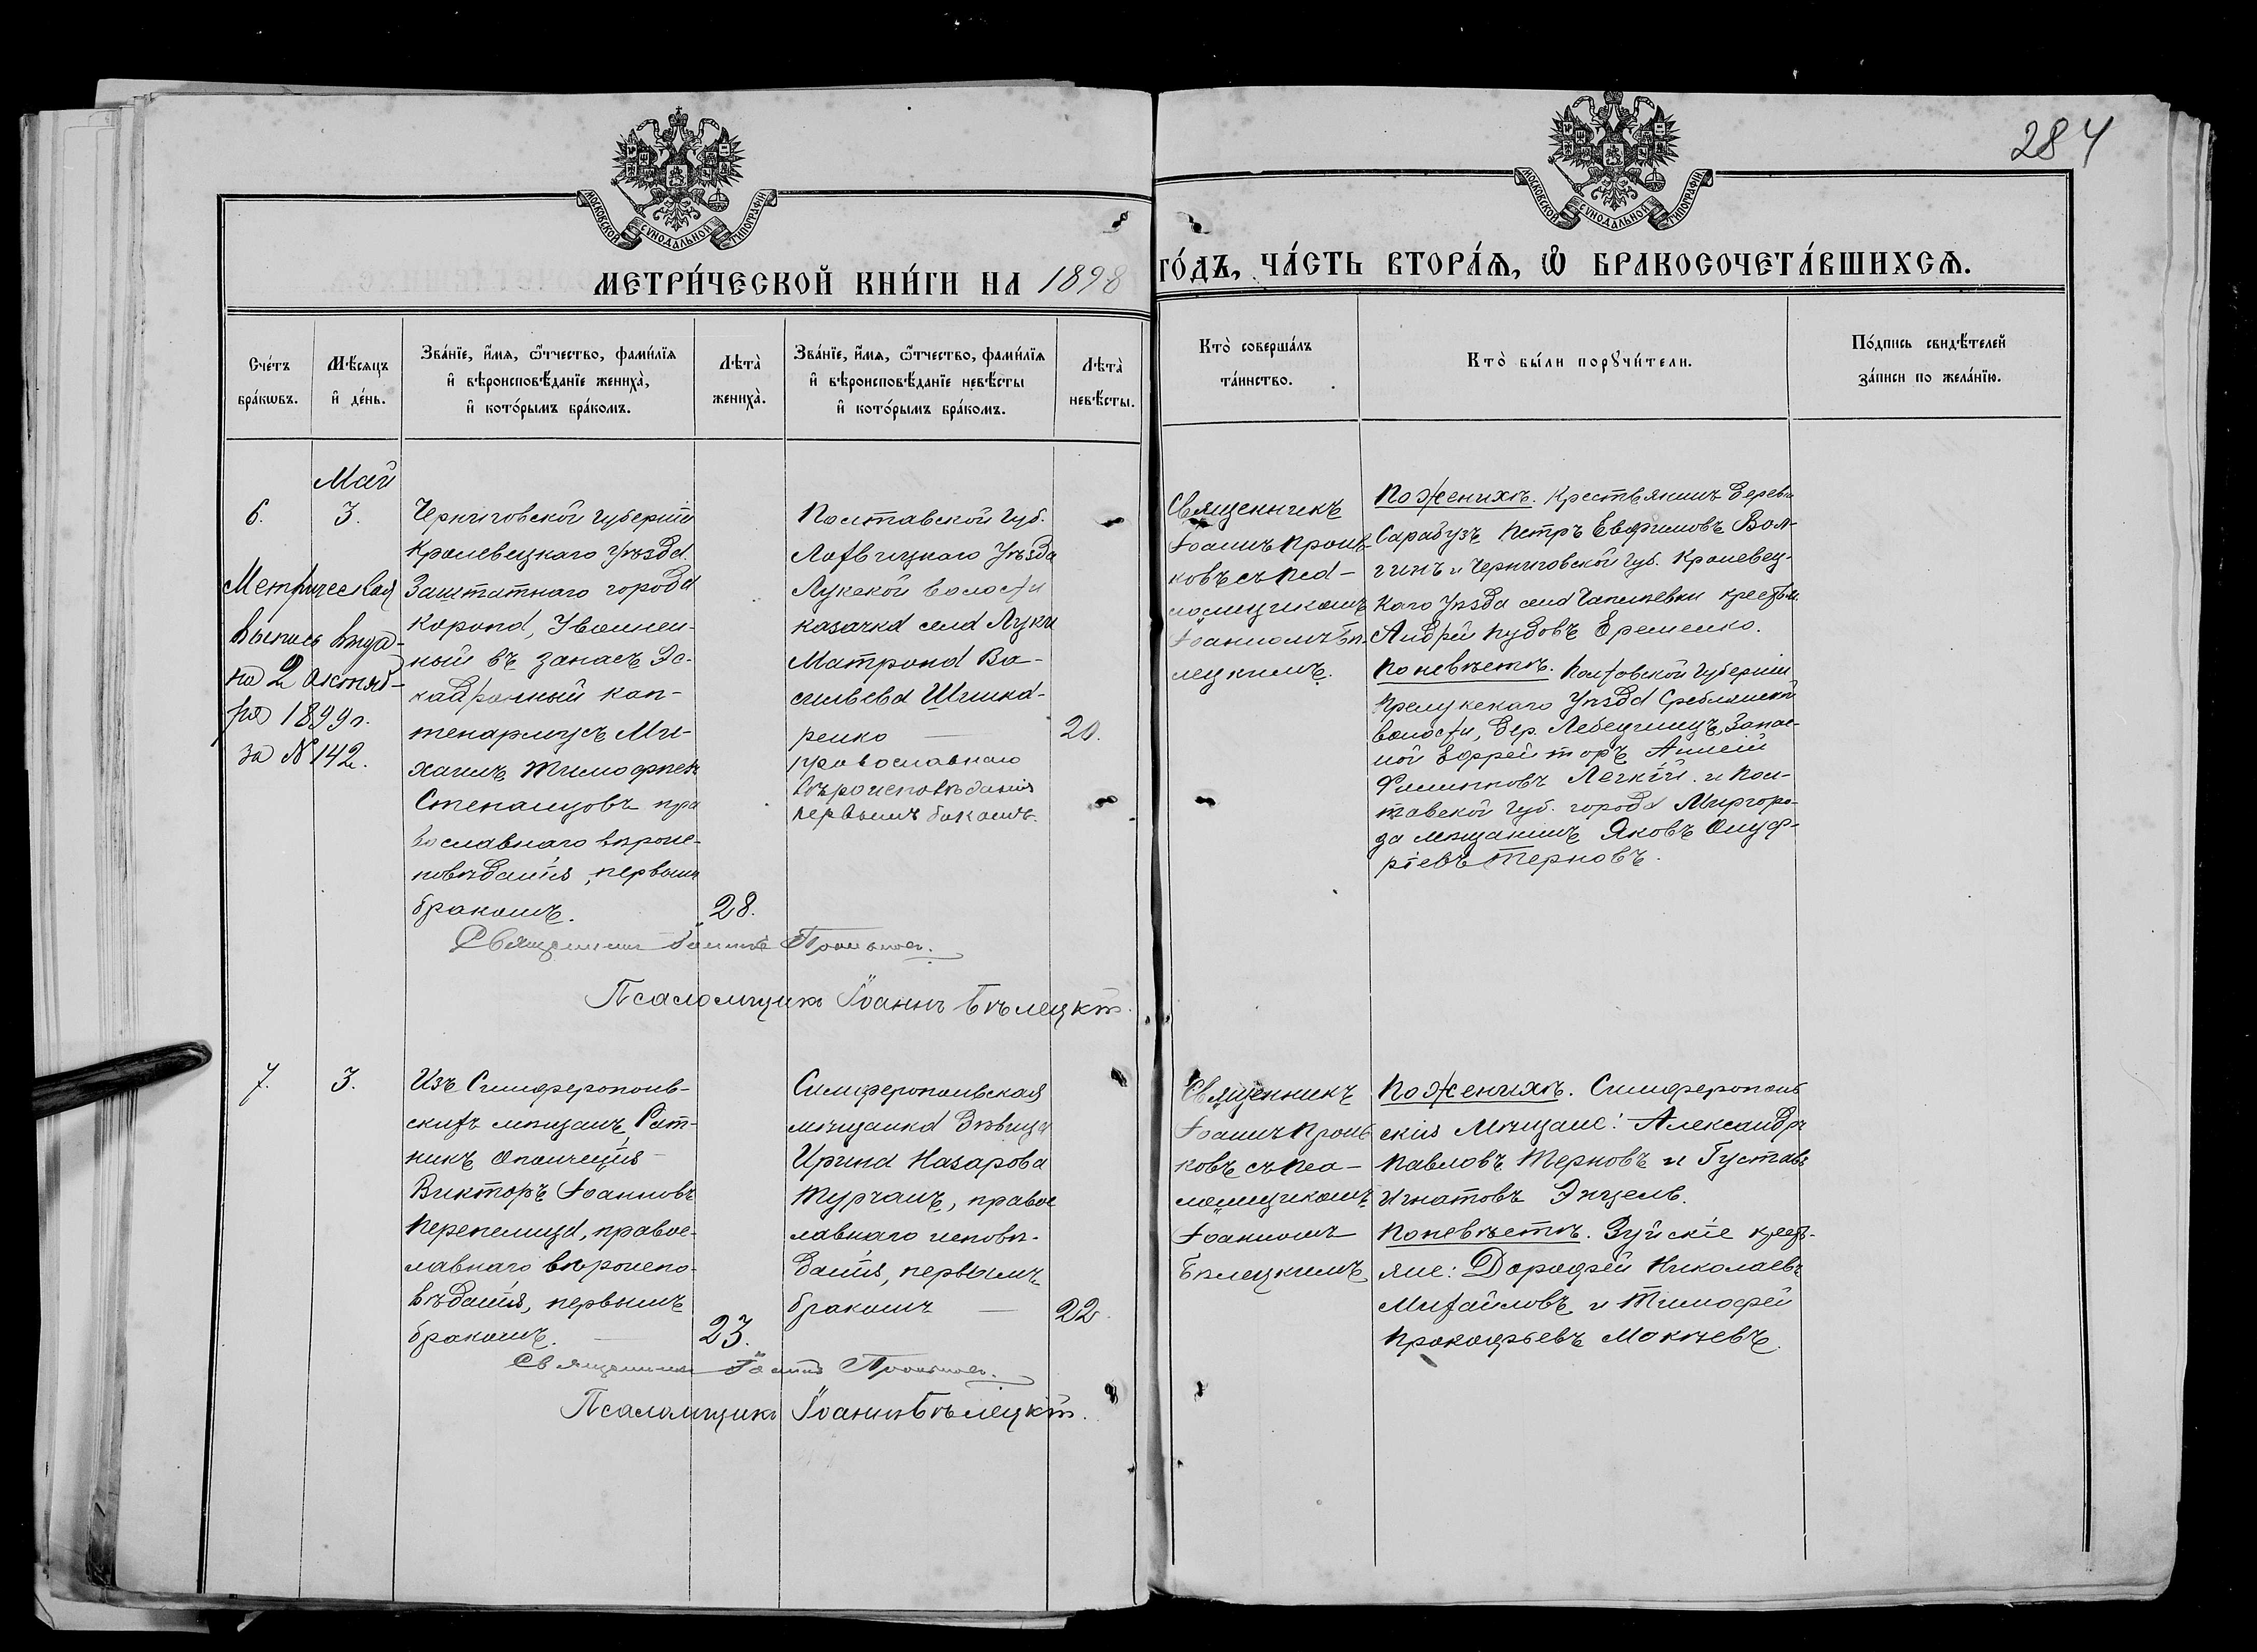 284
МОСКОВСКОЙ СУНОДАЛЬНОЙ ТИПОГРАФІИ
МОСКОВСКОЙ СУНОДАЛЬНОЙ ТИПОГРАФІИ
МЕТРИ́ЧЕСКОЙ КНИ́ГИ НА 1898
ГО́ДЪ, ЧА́СТЬ ВТОРА́Я, Ѡ҆ БРАКОСОЧЕТА́ВШИХСЯ.
Сче́тъ
бра́кѡвъ.
Мѣ́сяцъ
и҆ де́нь.
Зва́нїе, и҆́мя, ѻ҆́тчество, фами́лїя
и҆ вѣроисповѣ́данїе жениха̀,
и҆ кото́рымъ бра́комъ.
Лѣта̀
жениха̀.
Зва́нїе, и҆́мя, ѻ҆́тчество, фами́лїя
и҆ вѣроисповѣ́данїе невѣ́сты
и҆ кото́рымъ бра́комъ.
Лѣта̀
невѣ́сты.
Кто̀ соверша́лъ
та́инство.
Кто̀ бы́ли порꙋчи́тели.
По́дпись свидѣ́телей
за́писи по жела́нїю.
6.
Май
3.
Метрическая
выпись выда-
на 2 октяб-
ря 1899 г.
за № 142.
Черниговской губерніи
Кролевецкаго Уѣзда
Заштатнаго города
Коропа, Уволнен-
ный въ запасъ Эс-
кадронный кап-
тенармусъ Ми-
хаилъ Тимофѣев
Степанцовъ пра
вославнаго вѣроис-
повѣданія, первымъ
бракомъ.
28.
Полтавской Губ.
Лохвицкаго Уѣзда
Лукской волости
казачка села Луки
Матрона Ва-
сильева Шинка-
ренко
православнаго
вѣроисповѣданія
первымъ бракомъ.
20.
Священникъ
Іоаннъ Проць
ковъ съ пса-
ломщикомъ
Іоанномъ Бѣ-
лецкимъ.
По женихѣ. Крестьянинъ дерев.
Сарабузъ Петръ Евфимовъ Вол-
гинъ и Черниговской Губ. Кролевец-
каго Уѣзда села Чаплиевки крестья.
Андрей Пудовъ Еременко.
По невѣстѣ. Полтовской Губерніи
Прилукскаго Уѣзда Сребнянской
волости, дер. Лебединецъ Запас-
ной Ефрейторъ
Филиповъ Легкій и Пол-
тавской Губ. города Миргоро-
да мѣщанинъ Яковъ Онуф-
ріевъ Терновъ.
Священникъ Іоаннъ
Псаломщикъ Іоаннъ Бѣлецкій.
7.
3.
Изъ Симферополь-
скихъ мѣщанъ, Рат-
никъ ополченія
Викторъ Іоанновъ
Перепелица, правос-
лавнаго вѣроиспо-
вѣданія, первымъ
бракомъ.
23.
Симферопольская
мѣщанка дѣвица
Ирина Назарова
Турчанъ, правос
лавнаго исповѣ-
данія, первымъ
бракомъ
22.
Священникъ
Іоаннъ Проць
ковъ съ пса-
ломщикомъ
Іоанномъ
Бѣлецкимъ
По женихѣ. Симферополь
скія Мѣщане: Александръ
Павловъ Терновъ и Густавъ
Игнатовъ Энцель.
По невѣстѣ. Зуйскіе крестья-
яне: Дорофей Николаевъ
Михайловъ и Тимофей
Прокофьевъ Мокѣевъ.
Священникъ Іоаннъ
Псаломщикъ Іоаннъ Бѣлецкій.